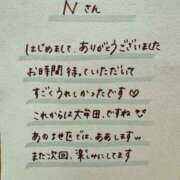 Nさん
はじめまして、ありがとうございました
お時間待っていただいて
すごくうれしかったです♡
これからは大毎回、ですね
また次回、楽しみにしてます